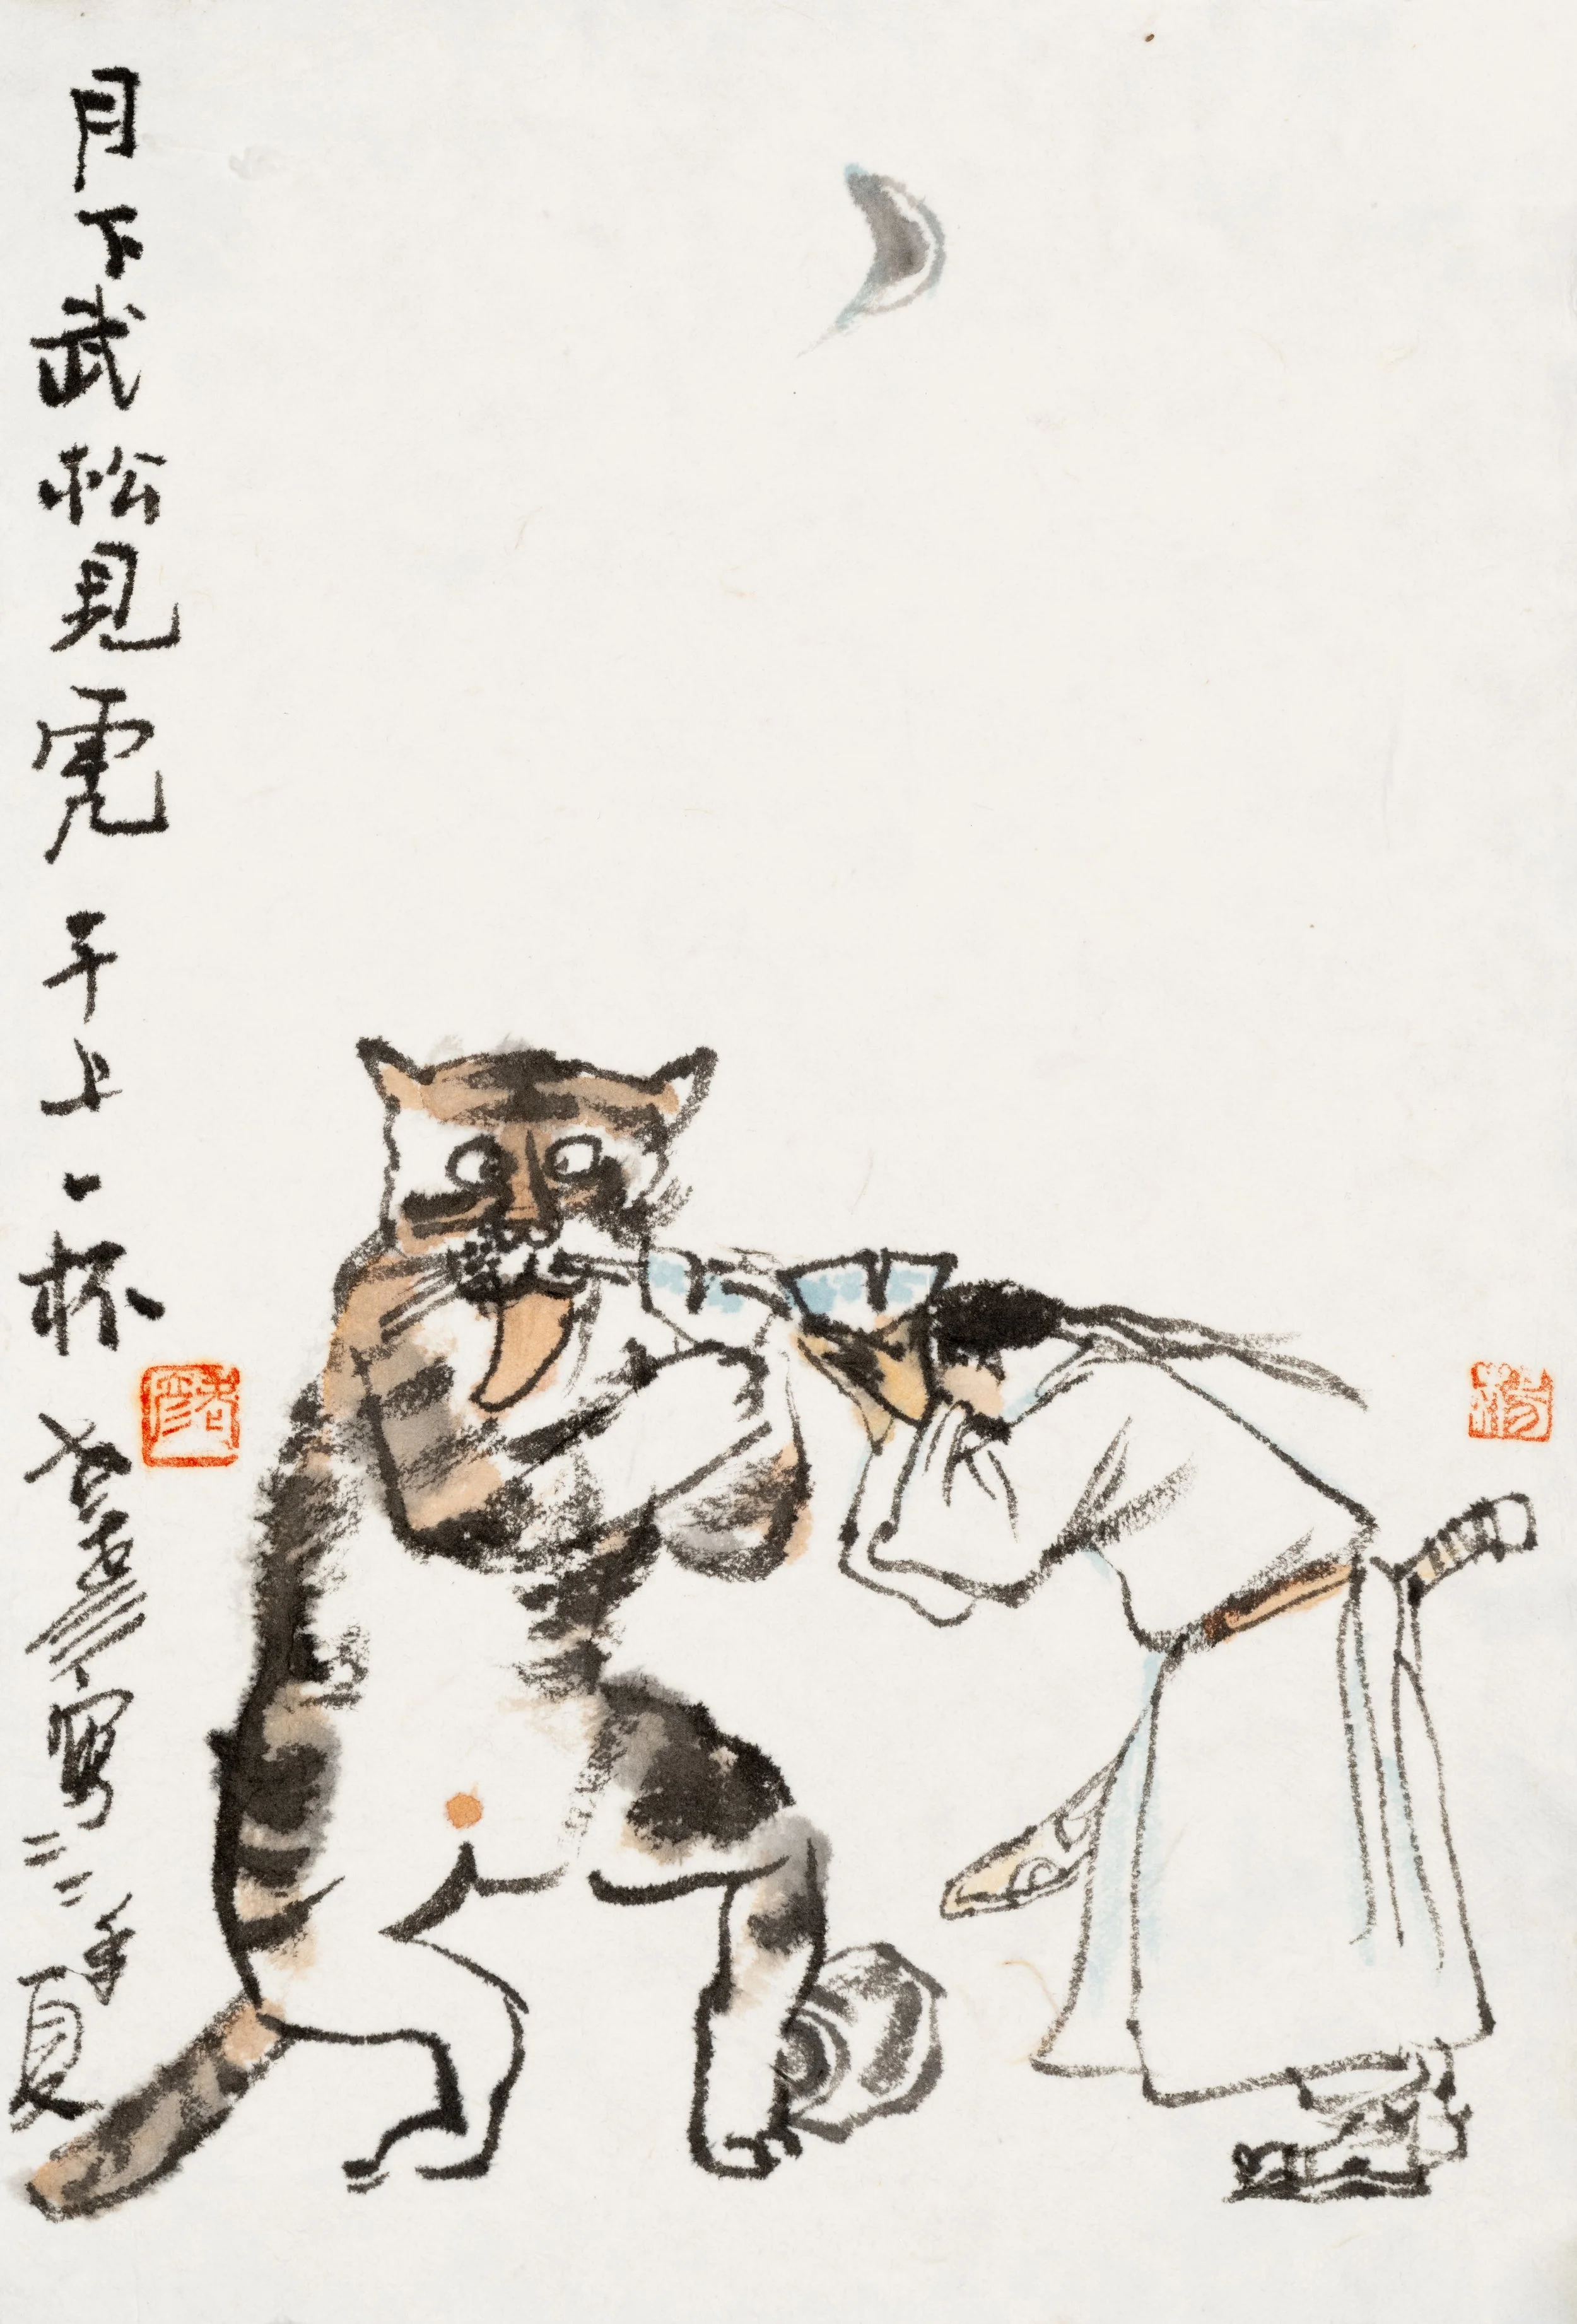 月下武松見虎干上一杯 老彦寫 二〇二二年夏
楊